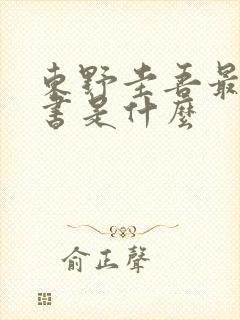 東野圭吾最
書是什麼
俞正聲